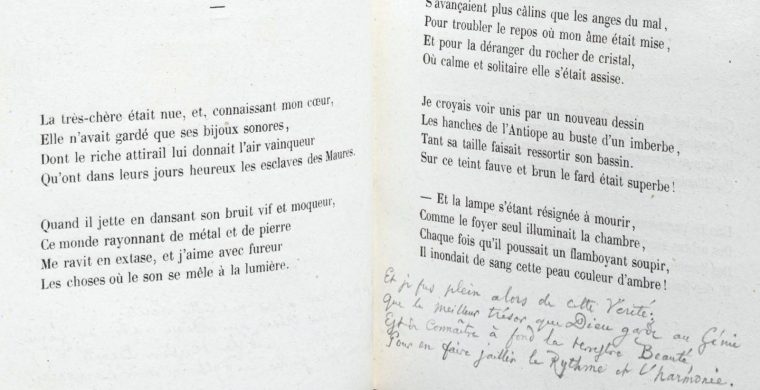 La très-chère était nue, et, connaissant mon cœur,
Elle n'avait gardé que ses bijoux sonores,
Dont le riche attirail lui donnait l'air vainqueur
Qu'ont dans leurs jours heureux les esclaves des Maures.
Quand il jette en dansant son bruit vif et moqueur,
Ce monde rayonnant de métal et de pierre
Me ravit en extase, et j'aime avec fureur
Les choses où le son se mêle à la lumière.
S'avançaient plus câlins que les anges du mal,
Pour troubler le repos où mon âme était mise,
Et pour la déranger du rocher de cristal,
Où calme et solitaire elle s'était assise.
Je croyais voir unis par un nouveau dessin
Les hanches de l'Antiope au buste d'un imberbe,
Tant sa taille faisait ressortir son bassin.
Sur ce teint fauve et brun le fard était superbe!
— Et la lampe s'étant résignée à mourir,
Comme le foyer seul illuminait la chambre,
Chaque fois qu'il poussait un flamboyant soupir,
Il inondait de sang cette peau couleur d'ambre!
Et je fus plein alors de cette Vérité:
Que le meilleur trésor que Dieu garde au Génie
Est de connaître à fond la terrestre Beauté
Pour en faire jaillir le Rythme et l'harmonie.